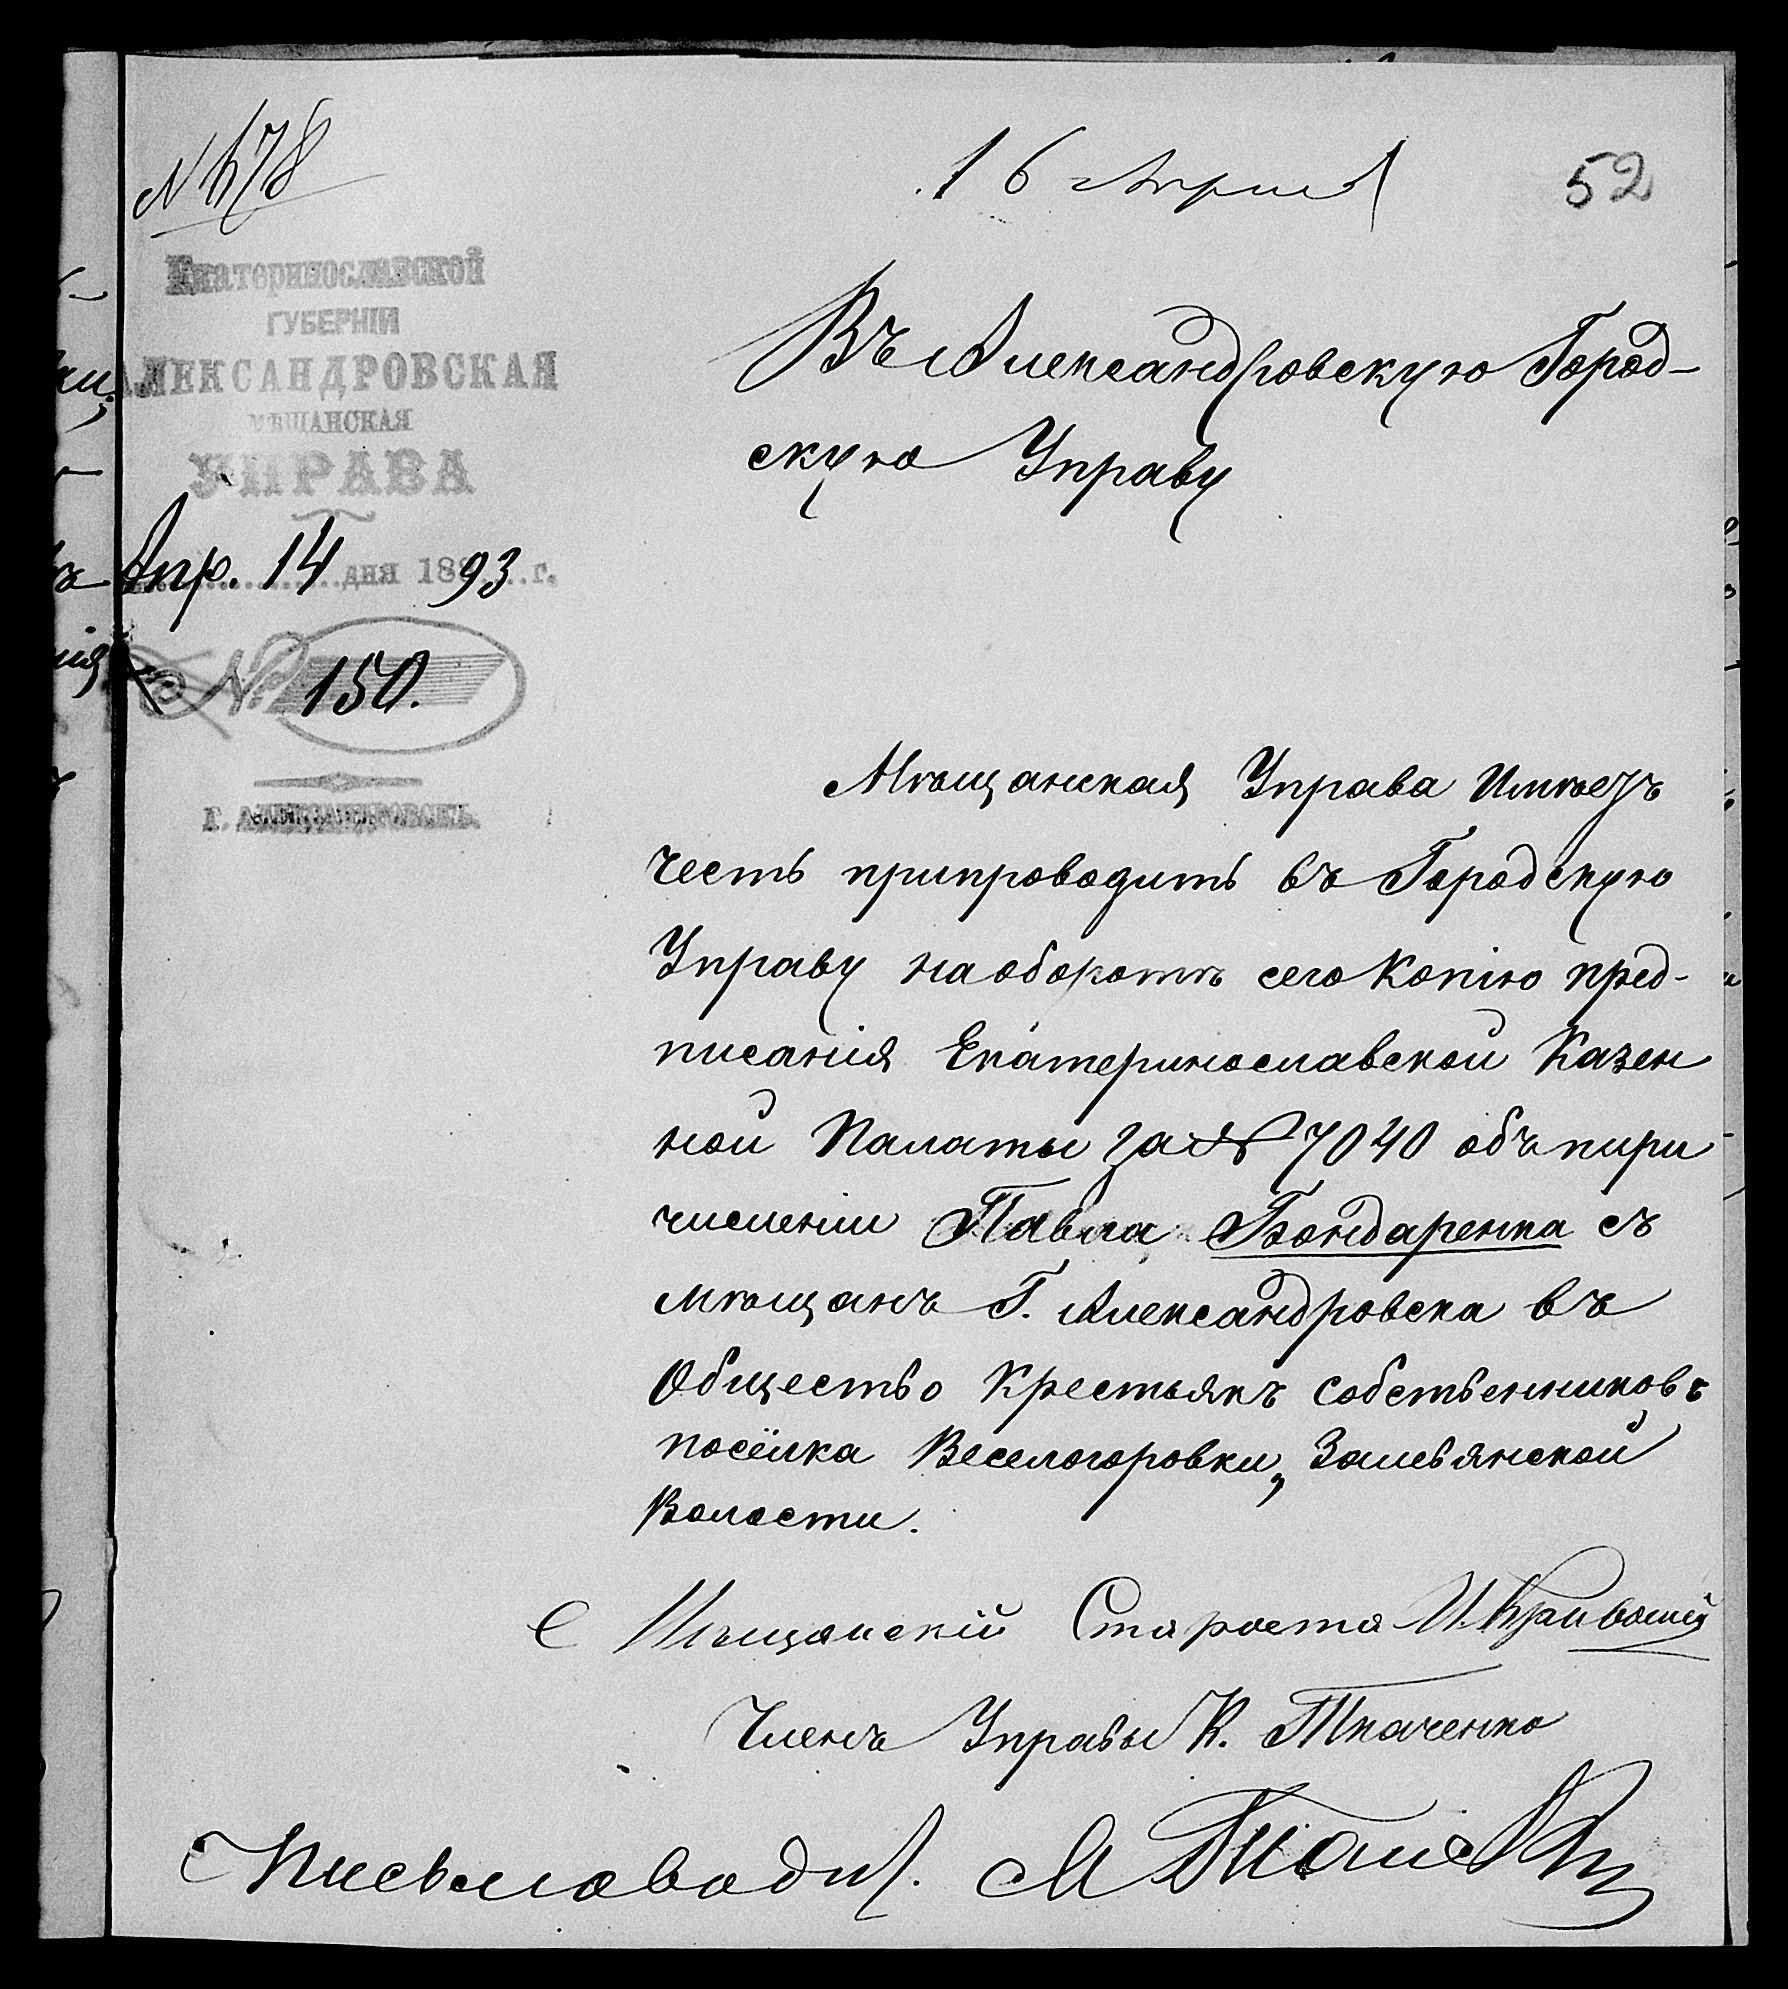 16 Апреля
52
Екатеринославской
ГУБЕРНІИ
АЛЕКСАНДРОВСКАЯ
МѢЩАНСКАЯ
УПРАВА
Апр. 14 дня 1893 г.
№ 150.
Г. АЛЕКСАНДРОВСКЪ.
Въ Александровскую Город-
скую Управу
Мѣщанская Управа Имѣетъ
честь припроводить въ Городскую
Управу на оборотѣ сего Копію пред-
писанія Екатеринославской Казен
ной Палаты за № 7040 объ пири
числении Павла Бондаренка съ
мѣщанъ Г. Александровска въ
Общество Крестьянъ собственниковъ
посёлка Веселогоровки,
Волости.
Мѣщанскій Староста И. Кривошей
Членъ Управы К. Ткаченко
Письмовод.